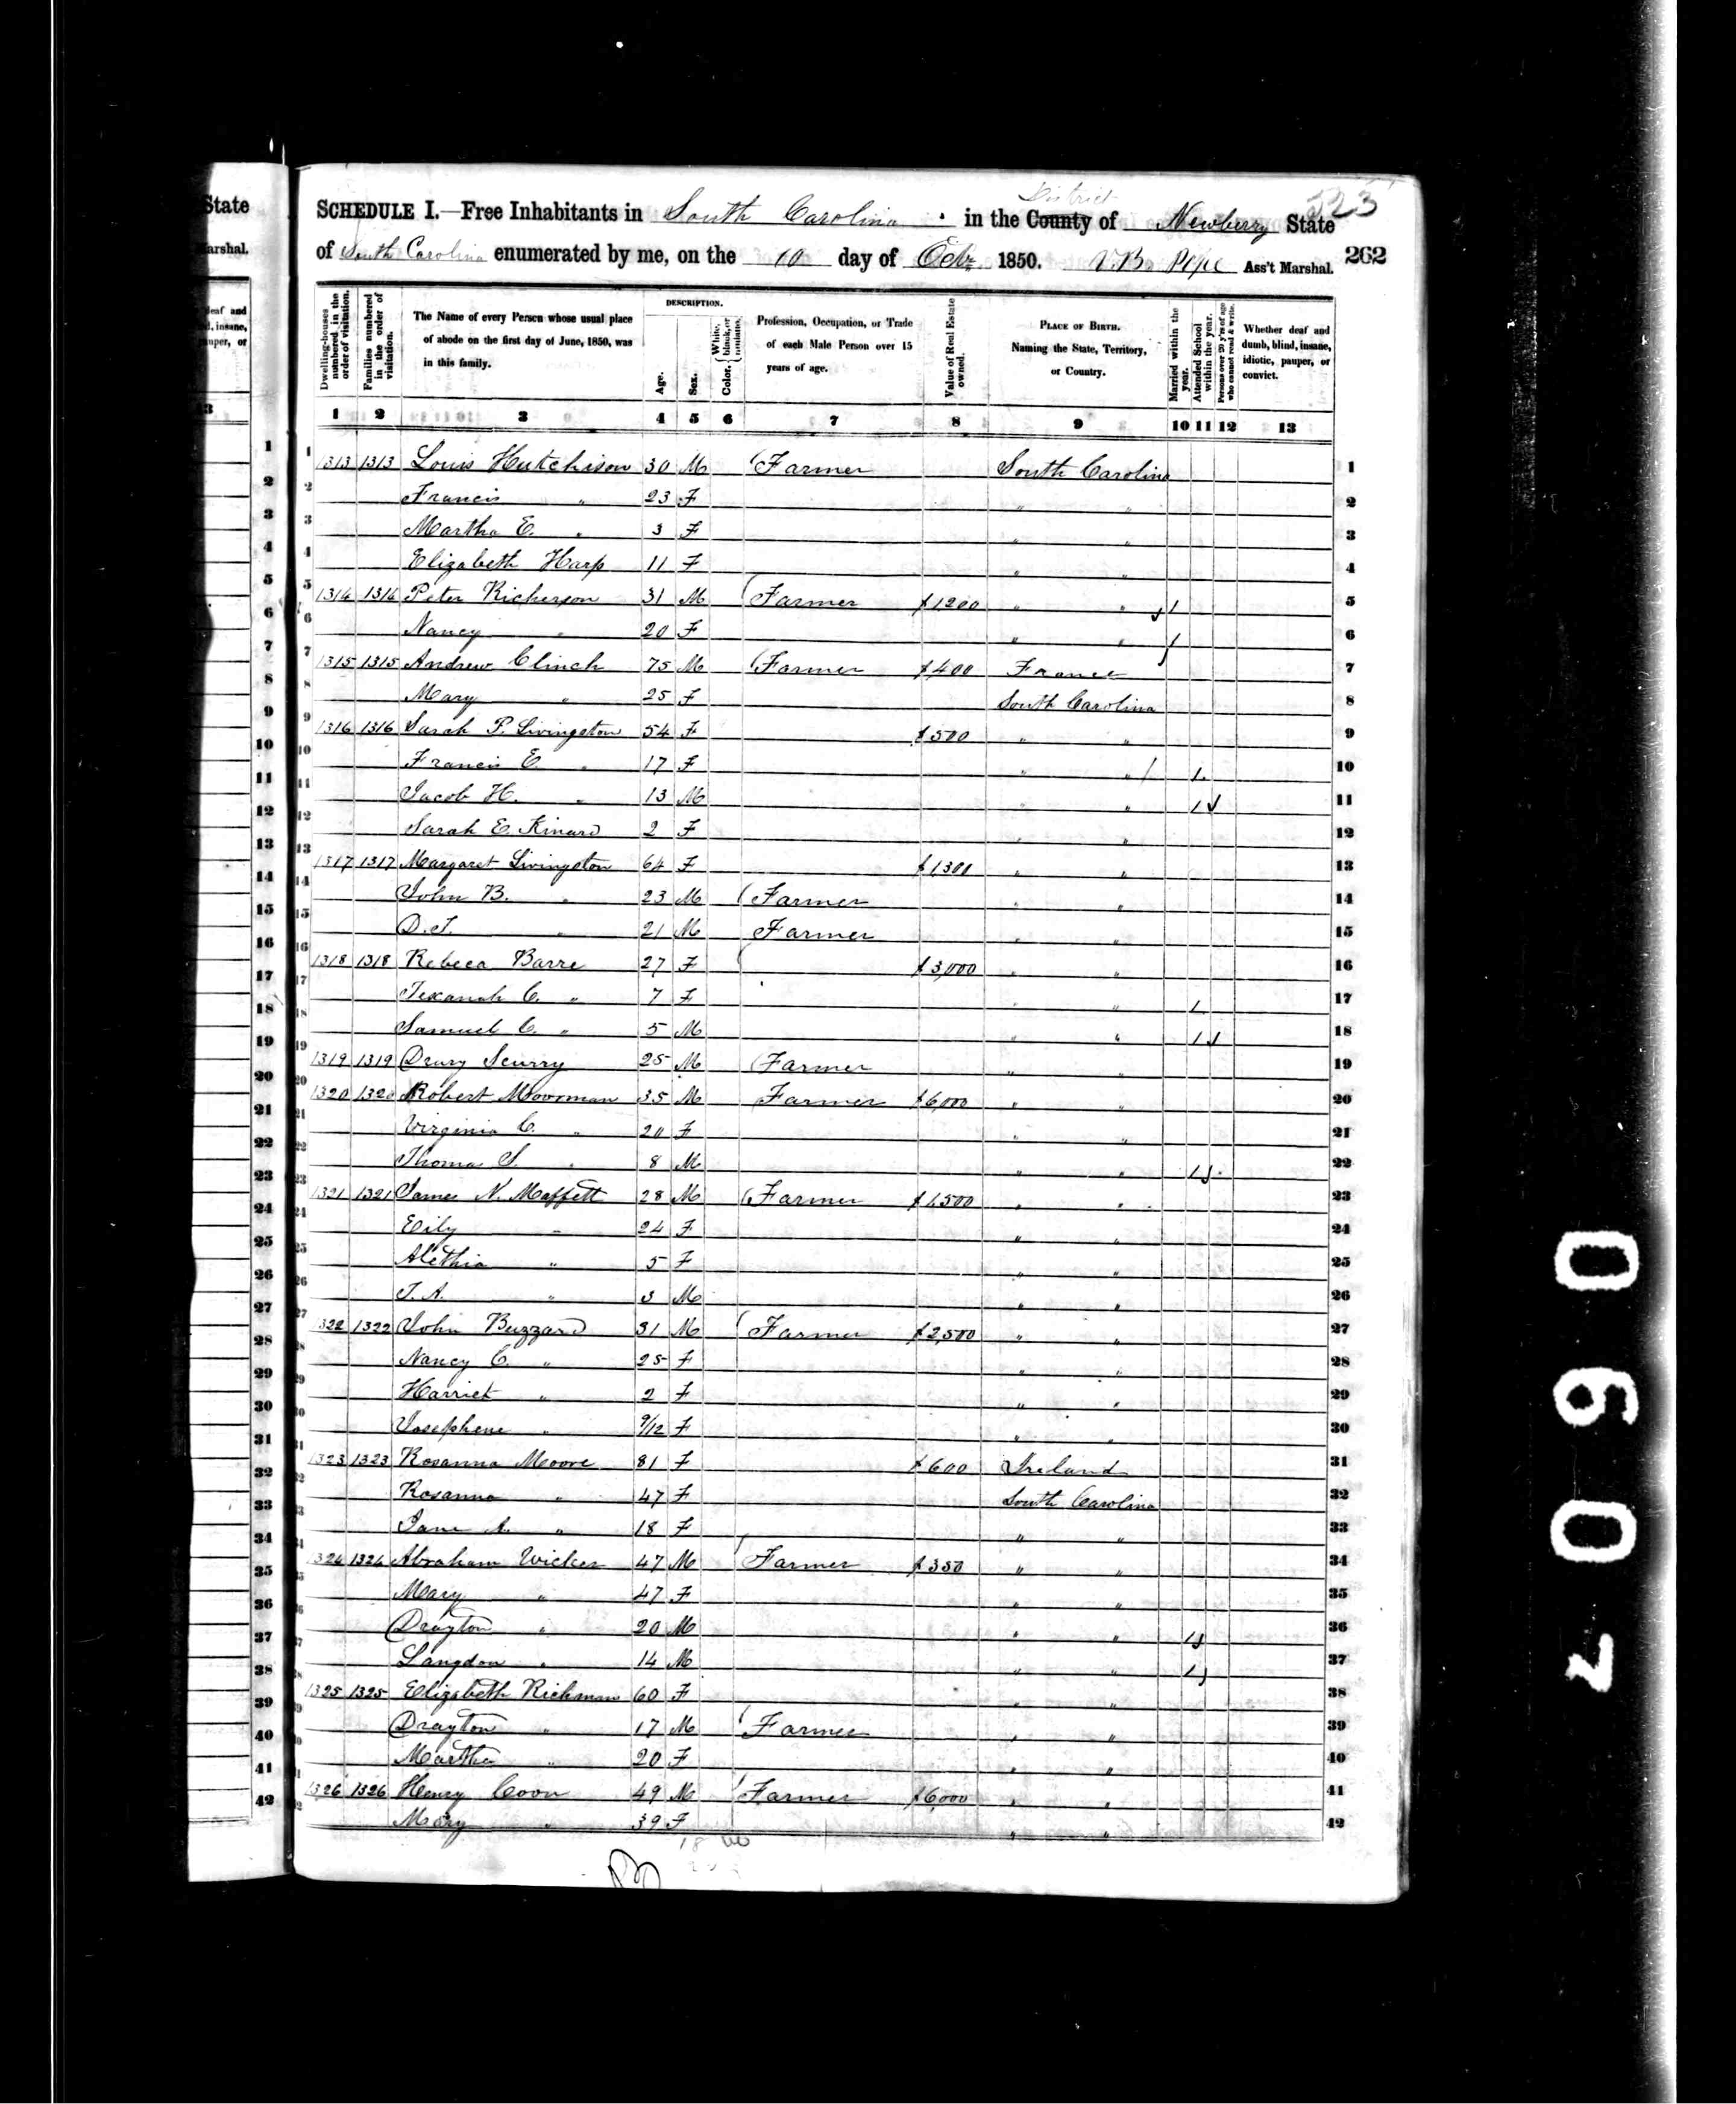 District
323
SCHEDULE I.—Free Inhabitants in South Carolina in the County of Newberry State
of South Carolina enumerated by me, on the 10 day of Octr 1850. V.B. Pope Ass't Marshal. 262
Dwelling-houses numbered in the order of visitation. Families numbered in the order of visitation. The Name of every Person whose usual place of abode on the first day of June, 1850, was in this family. DESCRIPTION. Age. Sex. Color, White, black, or mulatto. Profession, Occupation, or Trade of each Male Person over 15 years of age. Value of Real Estate owned. PLACE OF BIRTH. Naming the State, Territory, or Country. Married within the year. Attended School within the year. Persons over 20 y'rs of age who cannot read & write. Whether deaf and dumb, blind, insane, idiotic, pauper, or convict.
1 2 3 4 5 6 7 8 9 10 11 12 13
1 1313 1313 Louis Hutchison 30 M Farmer South Carolina 1
2 Francis " 23 F " " 2
3 Martha E. " 3 F " " 3
4 Elizabeth Harp 11 F " " 4
5 1314 1314 Peter Richerson 31 M Farmer $1200 " " 1 5
6 Nancy " 20 F " " 1 6
7 1315 1315 Andrew Clinch 75 M Farmer $400 France 7
8 Mary " 25 F South Carolina 8
9 1316 1316 Sarah P. Livingston 54 F $500 " " 9
10 Francis E. " 17 F " " 1 10
11 Jacob H. " 13 M " " 1 11
12 Sarah E. Kinard 2 F " " 12
13 1317 1317 Margaret Livingston 64 F $1300 " " 13
14 John B. " 23 M Farmer " " 14
15 D.J. " 21 M Farmer " " 15
16 1318 1318 Rebeca Barre 27 F $3,000 " " 16
17 Texanah C. " 7 F " " 1 17
18 Samuel C. " 5 M " " 1 18
19 1319 1319 Drury Scurry 25 M Farmer " " 19
20 1320 1320 Robert Moorman 35 M Farmer $6,000 " " 20
21 Virginia C. " 20 F " " 21
22 Thomas S. " 8 M " " 1 22
23 1321 1321 James N. Maffett 28 M Farmer $1,500 " " 23
24 Eily " 24 F " " 24
25 Alethia " 5 F " " 25
26 J. A. " 3 M " " 26
27 1322 1322 John Buzzard 31 M Farmer $2,500 " " 27
28 Nancy C. " 25 F " " 28
29 Harriet " 2 F " " 29
30 Josephene " 9/12 F " " 30
31 1323 1323 Rosanna Moore 81 F $600 Ireland 31
32 Rosanna " 47 F South Carolina 32
33 Jane A. " 18 F " " 33
34 1324 1324 Abraham Wicker 47 M Farmer $350 " " 34
35 Mary " 47 F " " 35
36 Drayton " 20 M " " 1 36
37 Langdon " 14 M " " 1 37
38 1325 1325 Elizabeth Richman 60 F " " 38
39 Drayton " 17 M Farmer " " 39
40 Martha " 20 F " " 40
41 1326 1326 Henry Coon 49 M Farmer $6,000 " " 41
42 Mary " 39 F " " 42
0690
207